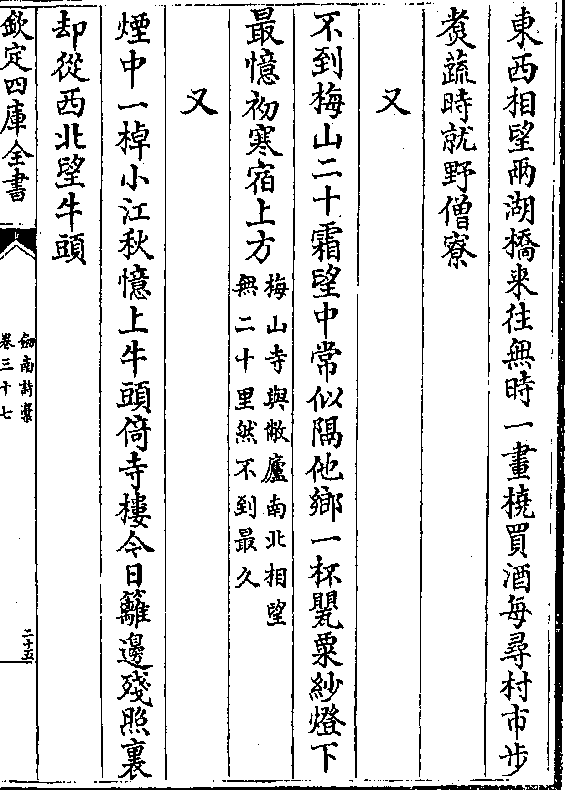 東西相望兩湖橋来往無時一畫橈買酒每尋村市步
煑蔬時就野僧寮
又
不到梅山二十霜望中常似隔他鄉一杯甖粟紗燈下
最憶初寒宿上方梅山寺與敝廬南北相望
無二十里然不到最久
又
煙中一棹小江秋憶上牛頭倚寺樓今日籬邊殘照裏
却從西北望牛頭
欽定四庫全書
劒南詩稾
卷三十七
二十五